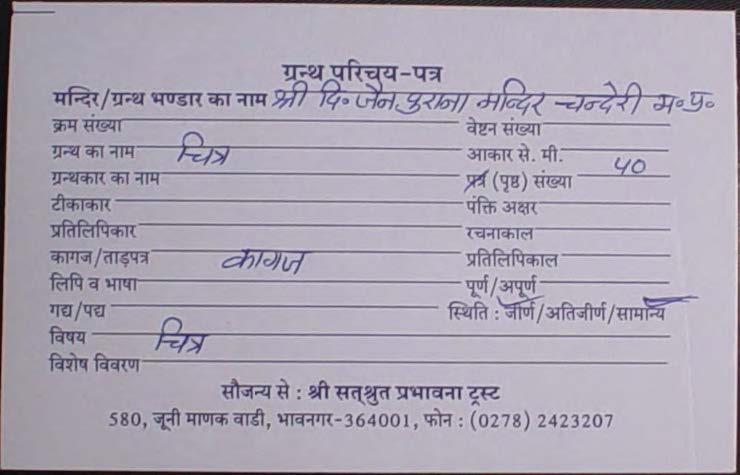 ग्रन्थ परिचय-पत्र
मन्दिर/ग्रन्थ भण्डार का नाम श्री दि॰ जैन पुराना मन्दिर चन्देरी म॰प्र॰
क्रम संख्या वेष्टन संख्या
ग्रन्थ का नाम चित्र आकार से. मी.
ग्रन्थकार का नाम पत्र (पृष्ठ) संख्या ५०
टीकाकार पंक्ति अक्षर
प्रतिलिपिकार रचनाकाल
कागज/ताड़पत्र कागज प्रतिलिपिकाल
लिपि व भाषा पूर्ण/अपूर्ण
गद्य/पद्य स्थिति : जीर्ण/अतिजीर्ण/सामान्य
विषय चित्र
विशेष विवरण
सौजन्य से : श्री सत्श्रुत प्रभावना ट्रस्ट
580, जूनी माणक वाडी, भावनगर-364001, फोन : (0278) 2423207